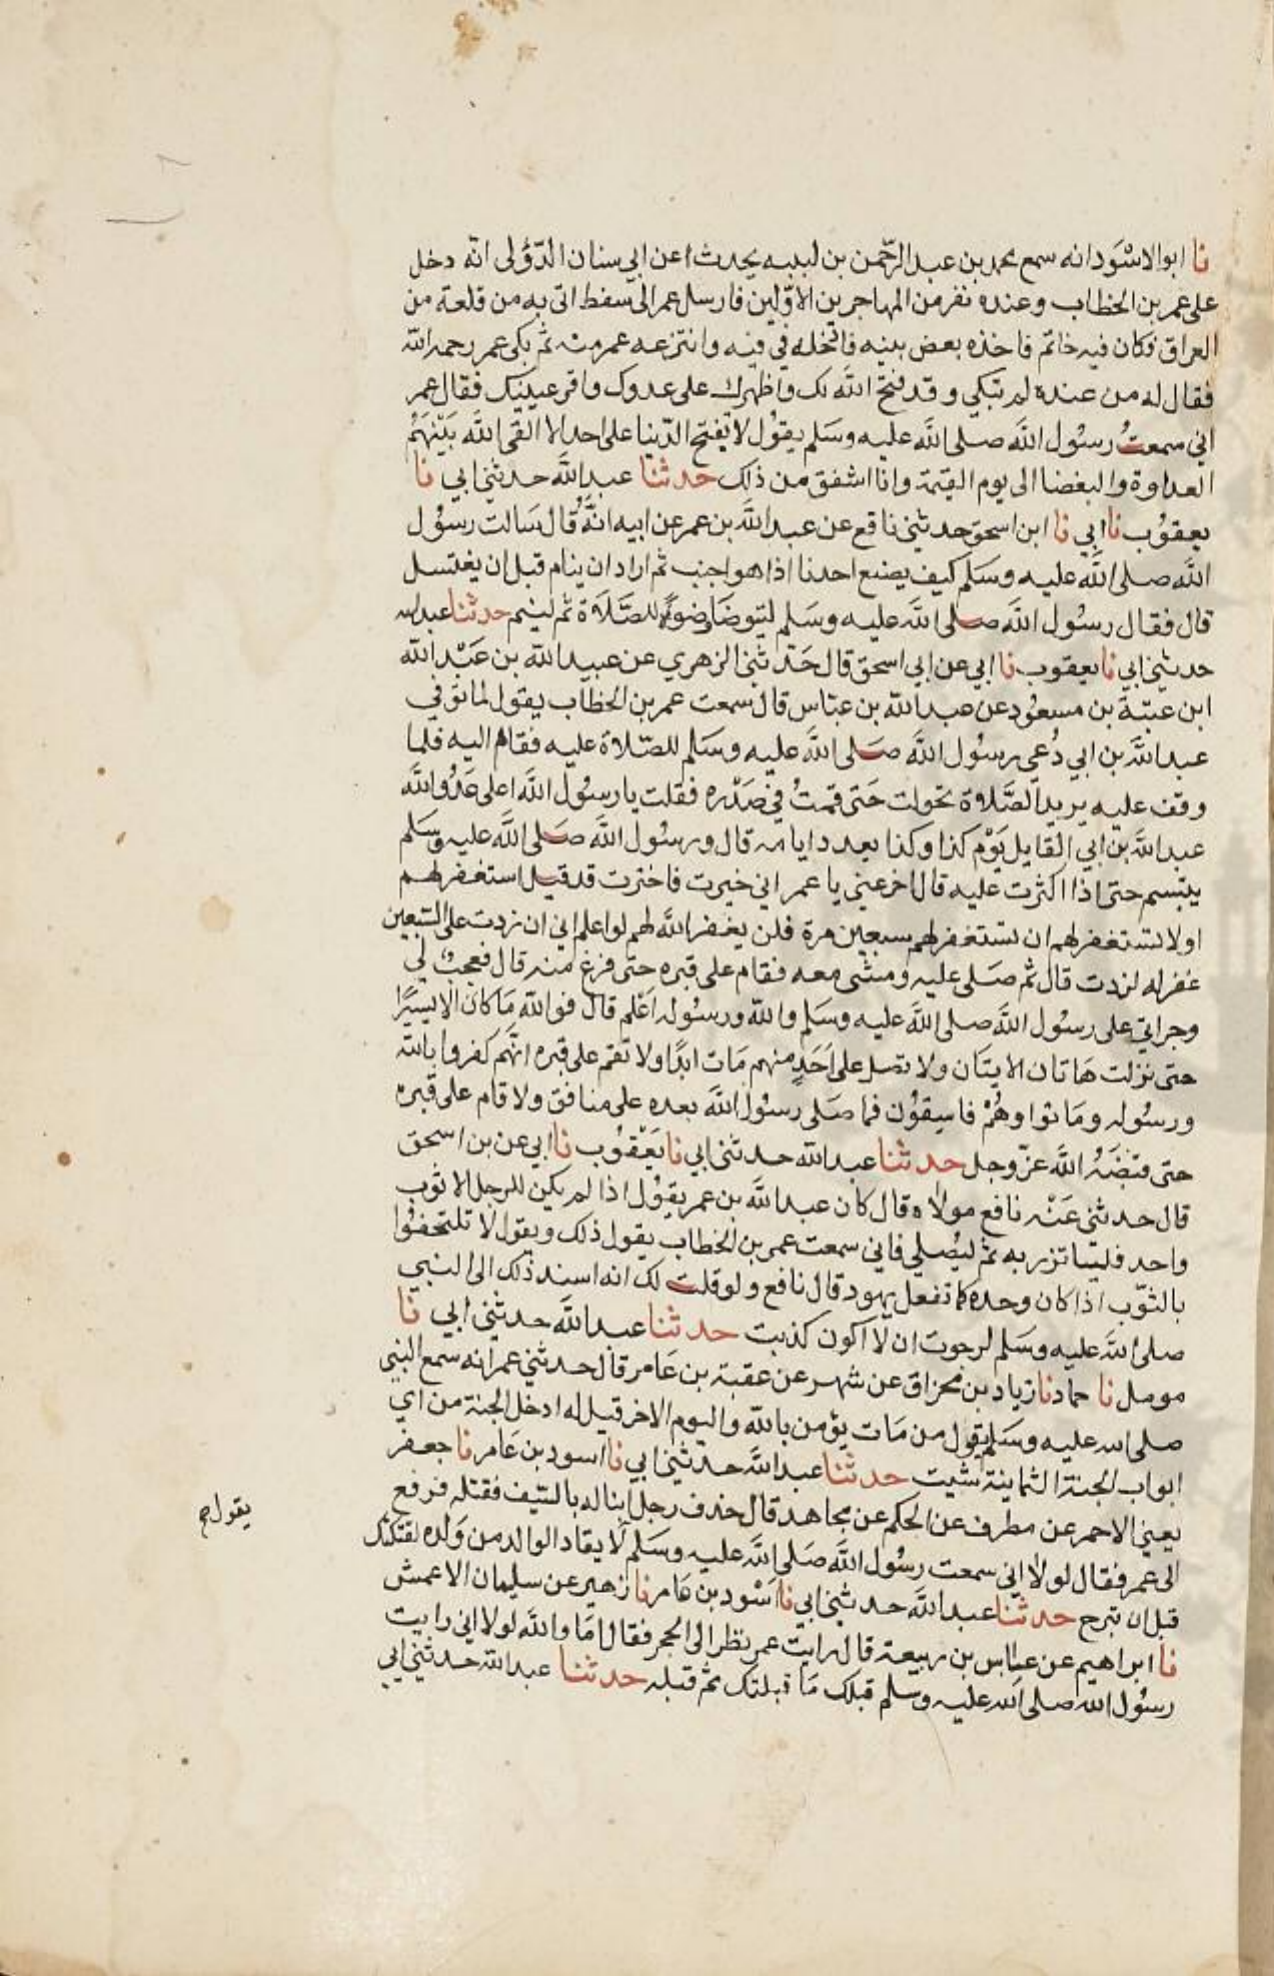 نا ابو الاسْوَد انه سمع محمد بن عبد الرحّمن بن لبيبه يحدث عن ابي سنان الدّؤلى انه دخل
على عمر بن الخطاب وعنده نفر من المهاجرين الاوّلين فارسل عمر الى سفط اتى به من قلعة من
العراق فكان فيه خاتم فاخذه بعض بنيه فادخله في فيه وانتزعه عمر منه ثم بكى عمر رحمه الله
فقال له من عنده لم تبكي وقد فتح الله لك واظهرك على عدوك واقر عينيك فقال عمر
اني سمعتُ رسُول الله صلى الله عليه وسَلم يقوُل لا تفتح الدّنيا على احد الا القى الله بَيْنهَمُ
العداوة والبغضا الى يوم القيمة وانا اشفق من ذلك حدثنا عبد الله حدثني ابي نا
يعقوُب نا ابي نا ابن اسحق حدثني نافع عن عبد الله بن عمر عن ابيه انهُ قال سَالت رسوُل
الله صلى الله عليه وسَلم كيف يصنع احدنا اذا هو اجنب ثم اراد ان ينام قبل ان يغتسل
قال فقال رسُول الله صلى الله عليه وسَلم ليتوضَا وضوءَه للصَّلاَة ثم لينم حدثنا عبد الله
حدثني ابي نا يعقوب نا ابي عن ابي اسحق قال حَدثني الزهري عن عبيد الله بن عَبْد الله
ابن عتبَة بن مسعُود عن عبد الله بن عبّاس قال سمعت عمر بن الخطاب يقول لما توفي
عبد الله بن ابي دُعى رسوُل الله صَلى الله عليه وسَلم للصّلاة عليه فقام اليه فلما
وقف عليه يريد الصَّلاة تحولت حَتى قمتُ في صَدْره فقلت يا رسوُل الله اعلى عَدُو الله
عبد الله بن ابي القايل يَوْم كذا وكذا يعدد ايامه قال ورسُول الله صَلى الله عليه وسَلم
يبتسم حتى اذا اكثرت عليه قال اخر عني يا عمر اني خيرت فاخترت قد قيل استغفر لهم
او لا تستغفر لهم ان تستغفر لهم سبعين مرة فلن يغفر الله لهم لو اعلم اني ان زدت على السّبعين
غفر له لزدت قال ثم صَلى عليه ومشى معه فقام على قبره حتى فرغ منه قال فعجبٌ لي
وجراتي على رسوُل الله صلى الله عليه وسَلم والله ورسوُله اعَلم قال فوالله مَا كان الا يسيرًا
حتى نزلت هَاتان الايتَان ولا تصل على اَحَدٍ منهم مَات ابدًا ولا تقم على قبره انهَم كفروا بالله
ورسوُله ومَا توا وهُمْ فاسِقوُن فما صَلى رسوُل الله بعده على منافق ولا قام على قبره
حتى قبَضَهُ الله عزّ وجل حدثنا عبد الله حدثني ابي نا يَعْقوُب نا ابي عن بن اسحق
قال حدثني عَنْه نافع مولاه قال كان عبد الله بن عمر يقوُل اذا لم يكن للرجل الا ثوب
واحد فليَاتزر به ثم ليُصلي فاني سمعت عمر بن الخطاب يقول ذلك ويقول لا تلتحفوُا
بالثوّب اذا كان وحده كما تفعل يهود قال نافع ولو قلت لك انه اسند ذلك الى النبي
صلى الله عليه وسَلم لرجوت ان لا اكون كذبت حدثنا عبد الله حدثني ابي نا
مومل نا حماد نا زياد بن مخراق عن شهر عن عقبة بن عَامر قال حدثني عمر انه سمع النبي
صلى الله عليه وسَلم يقول من مَات يؤمن بالله واليوم الاخر قيل له ادخل الجنة من اي
ابواب الجنة الثمانية شيت حدثنا عبد الله حدثني ابي نا اسود بن عَامر نا جعفر
يعني الاحمر عن مطرف عن الحكم عن مجاهد قال حذف رجل ابنا له بالسّيف فقتله فرفع
يقول صح
الى عمر فقال لولا اني سمعت رسُول الله صَلى الله عليه وسَلم لا يقاد الوالد من وَلده لقتلتك
قبل ان تبرح حدثنا عبد الله حدثني ابي نا اَسْود بن عَامر نا زهير عن سليمان الاعمش
نا ابراهيم عن عباس بن ربيعة قال رايت عمر نظر الى الحجر فقال امَا والله لولا اني رايت
رسُول الله صلى الله عليه وسلم قبلك مَا قبلتك ثم قبله حدثنا عبد الله حدثني ابي